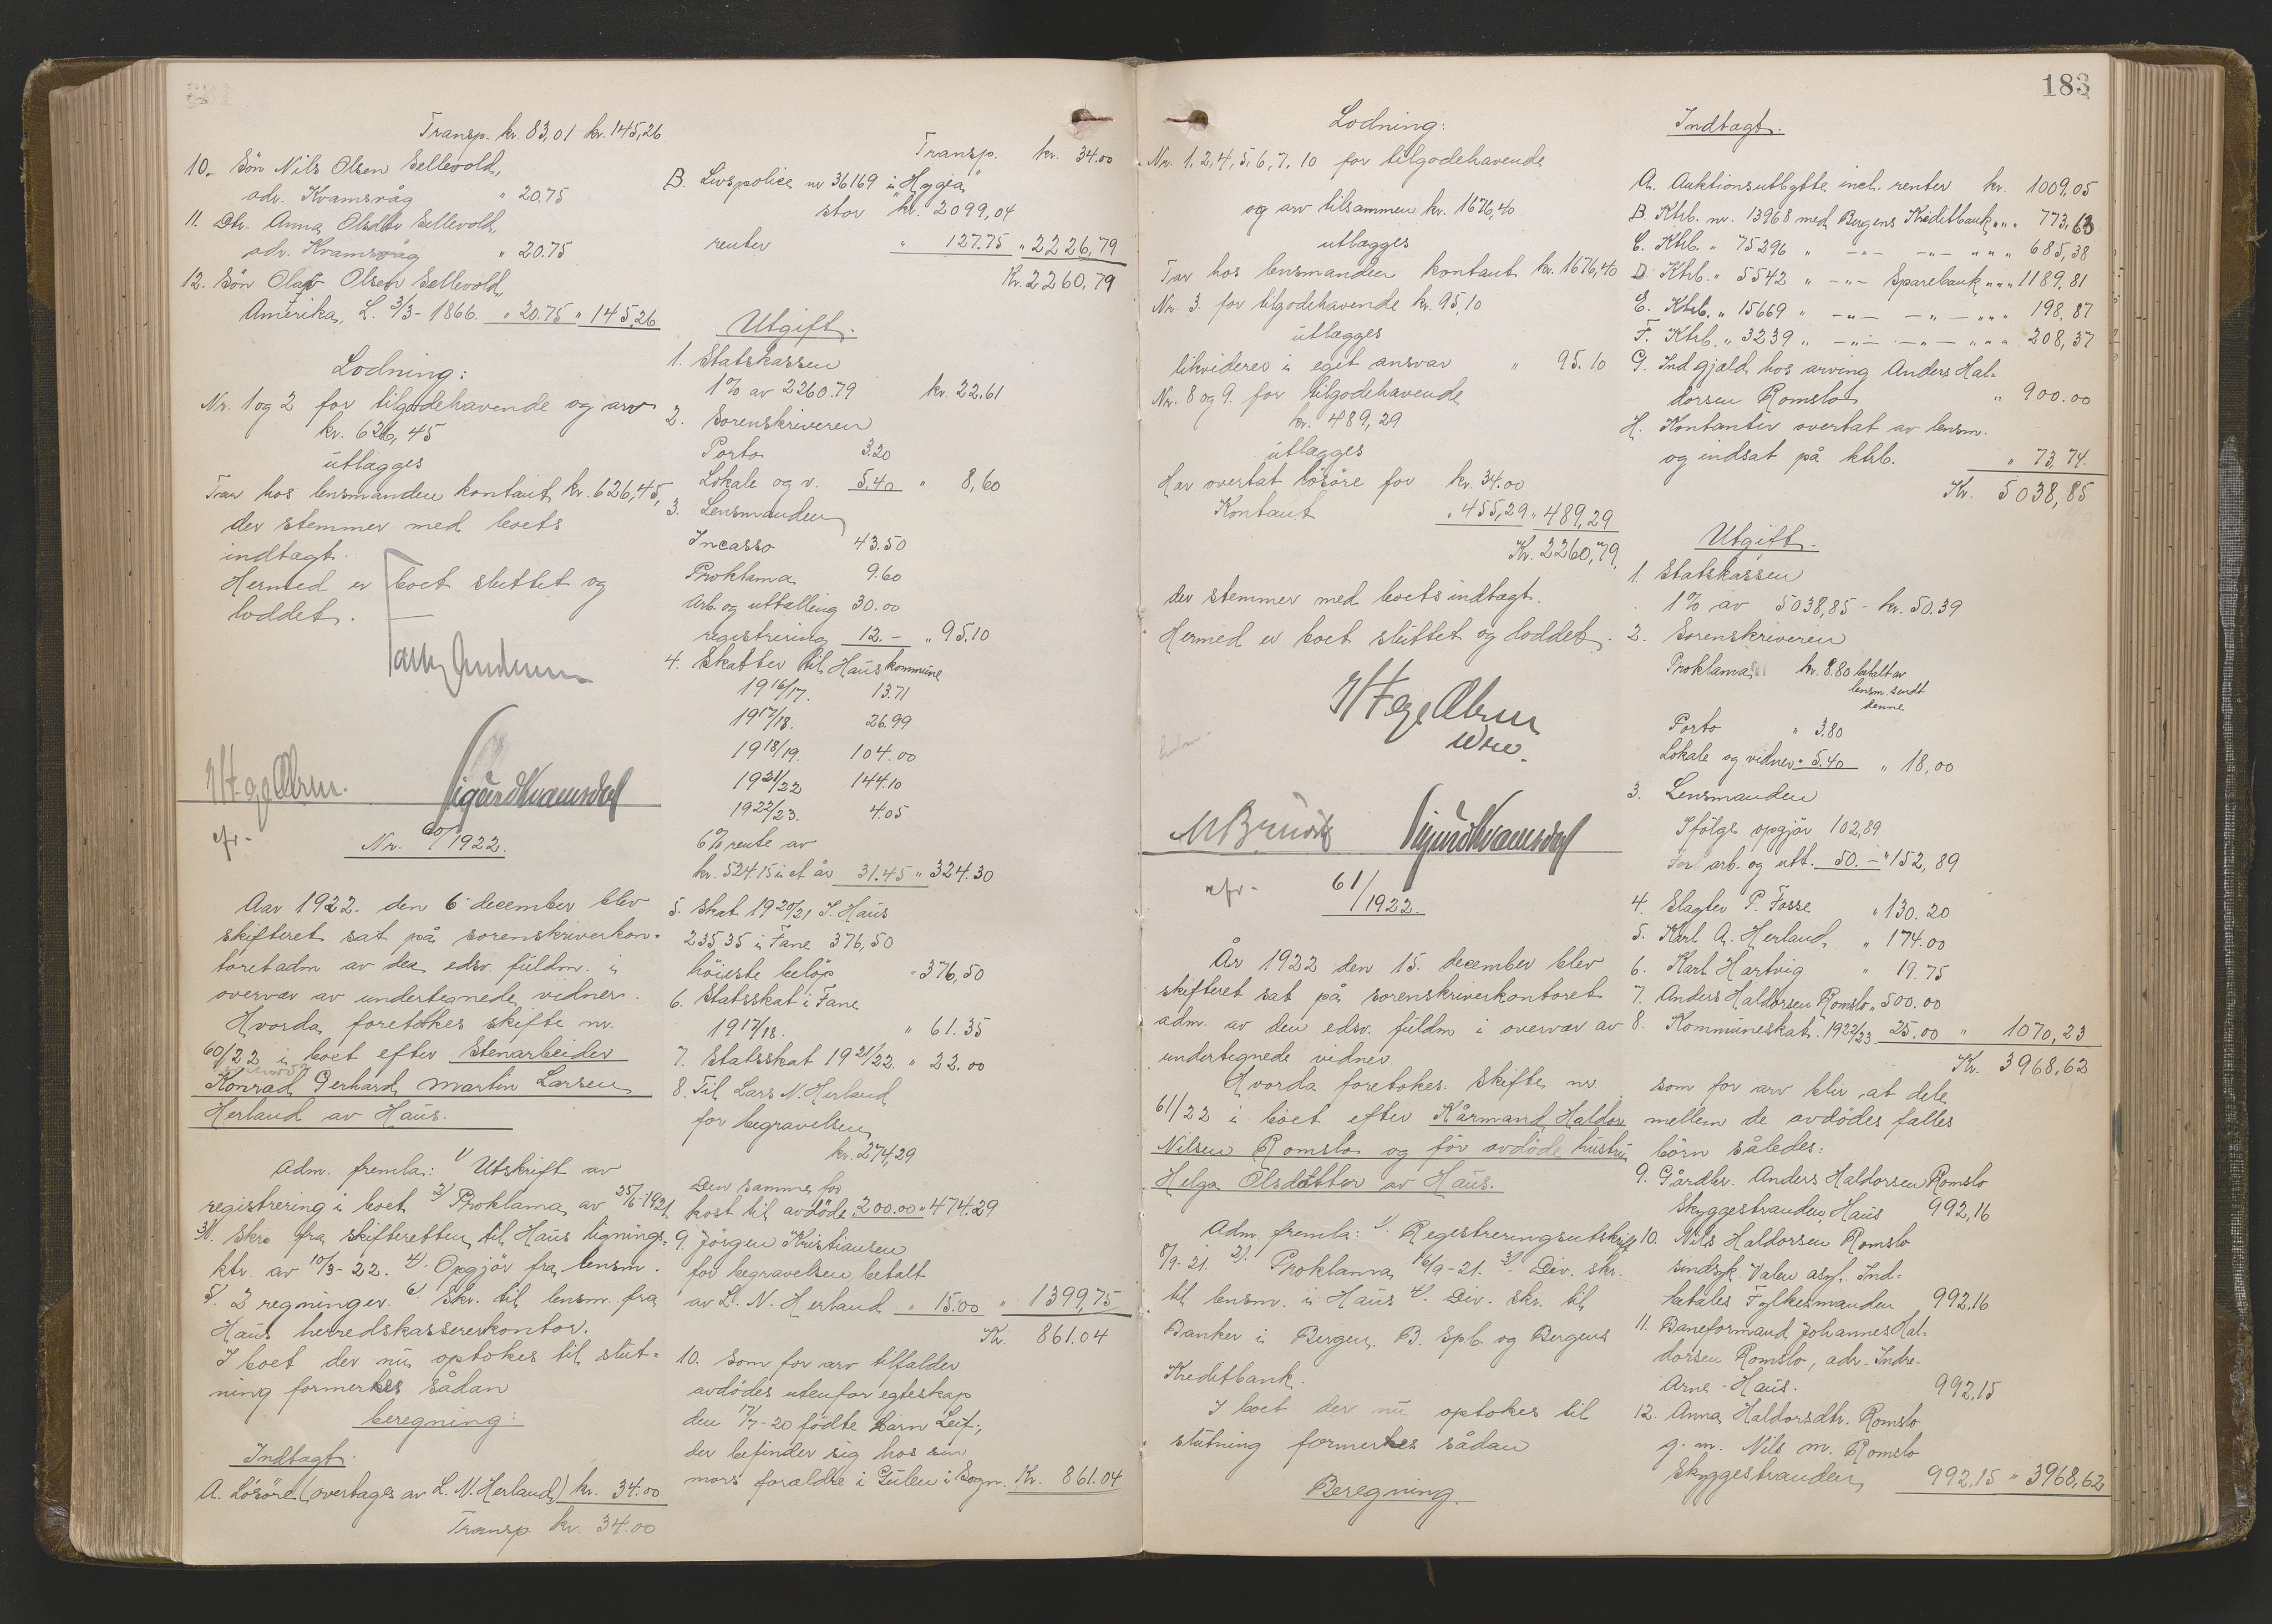 Transp. kr. 83,01 kr. 145,26
10. Sön Nils Olsen Sellevold,
adr. Kvamsvåg " 20.75
11. Dtr. Anna Olsdtr Sellevold,
adr. Kvamsvåg " 20.75
12. Sön Olav Olsen Sellevold,
Amerika, L. 3/3-1866. " 20.75 " 145,26
Lodning:
Nr. 1 og 2 for tilgodehavende og arv
kr. 626,45
utlægges
Tar hos lensmanden kontant kr. 626,45,
der stemmer med boets
indtægt.
Hermed er boet sluttet og
loddet.
Sigurd Kvamsdal
efr-
Nr. 60/1922.
Aar 1922 den 6 december blev
skifteret sat på sorenskriverkon-
toret adm av den edsv. fuldm. i
overvær av undertegnede vidner.
Hvorda foretokes skifte nr.
60/22 i boet efter Stenarbeider
Konrad Gerhard Martin Larsen
Herland av Haus.
Adm. fremla: 1) Utskrift av
registrering i boet 2) Proklama av 25/6-1921
3). Skr. fra skifteretten til Haus lignings-
ktr. av 10/3-22. 4). Opgjör fra lensm.
5. 2 regninger. 6) Skr. til lensm. fra
Haus herredskassererkontor.
I boet der nu optokes til slut-
ning formerkes sådan
beregning:
Indtægt.
A. Lösöre (overtages av L. N. Herland) kr. 34.00
Transp. kr. 34.00
Transp. kr. 34.00
B. Livspolice nr 36169 i "Hygea"
stor kr. 2099,04
renter " 127.75 " 2226,79
Kr. 2260,79
Utgift.
1. Statskassen
1% av 2260.79 kr. 22,61
2. Sorenskriveren
Porto 3.20
Lokale og v. 5.40 " 8,60
3. Lensmanden
Incasso 43.50
Proklama 9.60
Arb. og uttælling 30.00
registrering 12.- " 95.10
4. Skatter til Haus kommune
1916/17. 13.71
1917/18. 26.99
1918/19. 104.00
1921/22 144.10
1922/23. 4.05
6% rente av
kr. 524.15 i et år 31.45 " 324.30
5. Skat 1920/21 I. Haus
235,35 i Fane 376,50
höieste belöp " 376,50
6. Statsskat i Fane
1917/18. " 61.35
7. Statsskat 1921/22. " 22.00
8. Til Lars N. Herland
for begravelsen
kr. 274,29
Den samme for
kost til avdöde 200.00 " 474.29
9. Jörgen Kristiansen
for begravelsen, betalt
av L. N. Herland " 15.00 " 1399,75
Kr. 861.04
10. Som for arv tilfalder
avdödes utenfor egteskap
den 17/7-20 födte barn Leif,
der befinder sig hos sin
mors foraldre i Gulen i Sogn. Kr. 861.04
183
Lodning:
Nr. 1, 2, 4, 5, 6, 7, 10 for tilgodehavende
og arv tilsammen kr. 1676,40
utlægges
Tar hos lensmanden kontant kr. 1676,40
Nr. 3 for tilgodehavende kr. 95,10
utlægges
likvideres i eget ansvar " 95.10
Nr. 8 og 9. for tilgodehavende
kr. 489,29
utlægges
Har overtat lösöre for kr. 34.00
Kontant " 455,29 " 489,29
Kr. 2260,79,
der stemmer med boets indtægt.
Hermed er boet sluttet og loddet.
Sigurd Kvamsdal
efr-
61/1922.
År 1922 den 15. december blev
skifteret sat på sorenskriverkontoret
adm. av den edsv. fuldm i overvær av
undertegnede vidner.
Hvorda foretokes. Skifte nr.
61/22 i boet efter Kårmand Haldor
Nilsen Romslo og för avdöde hustru
Helga Olsdatter av Haus.
Adm. fremla: 1) Regestreringsutskrift
8/9-21. 2). Proklama 16/9-21. 3). Div. skr.
til lensm. i Haus 4). Div. skr. til
Banker i Bergen, B. Spb. og Bergens
Kreditbank.
I boet der nu optokes til
slutning formerkes sådan
Beregning.
Indtægt.
A. Auktionsutbytte incl. renter kr. 1009,05
B. Ktrb. nr. 13968 med Bergens Kreditbank " " " 773,63
C. Ktrb. " 75296 " -"- -"- " " " 685,38
D. Ktrb. " 5542 " -"- Sparebank " " " 1189,81
E. Ktrb. " 15669 " -"- -"- " " " 198,87
F. Ktrb. " 3239 " -"- -"- " " " 208,37
G. Ind gjæld hos arving Anders Hal-
dorsen Romslo " 900.00
H. Kontanter overtat av lensm.
og indsat på ktrb. " 73,74.
Kr. 5038,85
Utgift.
1. Statskassen
1% av 5038,85 - kr. 50.39
2. Sorenskriveren
Proklama kr. 8.80 betalt av
lensm. sendt
denne
Porto " 3.80
Lokale og vidner " 5.40 " 18,00
3. Lensmanden
Ifölge opgjör 102,89
For arb. og utt. 50.- " 152,89
4. Slagter P. Fosse " 130.20
5. Karl A. Herland " 174.00
6. Karl Hartvig " 19.75
7. Anders Haldorsen Romslo " 500.00
8. Kommuneskat. 1922/23 25.00 " 1070,23
Kr. 3968,62
som for arv blir at dele
mellem de avdödes fælles
börn således:
9. Gårdbr. Anders Haldorsen Romslo
Skyggestranden, Haus 992,16
10. Nils Haldorsen Romslo
sindsyk. Valen asyl. Ind-
betales Fylkesmanden 992.16
11. Baneformand Johannes Hal-
dorsen Romslo, adr. Indre-
Arne - Haus. 992,15
12. Anna Haldorsdtr. Romslo
g. m. Nils M. Romslo
Skyggestranden 992,15 " 3968,62